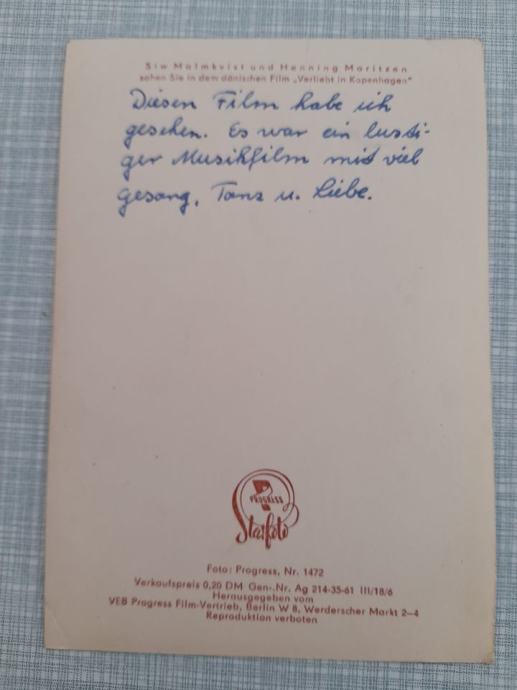 Siw Malmkvist und Henning Moritzen
sahen Sie in dem dänischen Film „Verliebt in Kopenhagen"
Diesen Film habe ich
gesehen. Es war ein lusti-
ger Musikfilm mit viel
Gesang, Tanz u. Liebe.
PROGRESS
Starfoto
Foto: Progress, Nr. 1472
Verkaufspreis 0,20 DM Gen.-Nr. Ag 214-35-61 III/18/6
Herausgegeben vom
VEB Progress Film-Vertrieb, Berlin W 8, Werderscher Markt 2–4
Reproduktion verboten